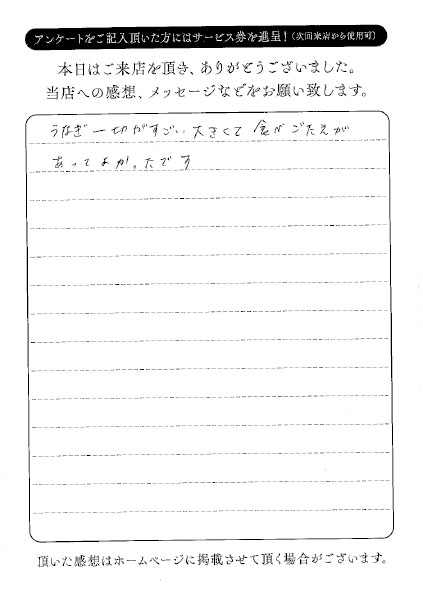 アンケートをご記入頂いた方にはサービス券を進呈！（次回来店から使用可）
本日はご来店を頂き、ありがとうございました。
当店への感想、メッセージなどをお願い致します。
うなぎ一切がすごい大きくて食べごたえが
あってよかったです
頂いた感想はホームページに掲載させて頂く場合がございます。